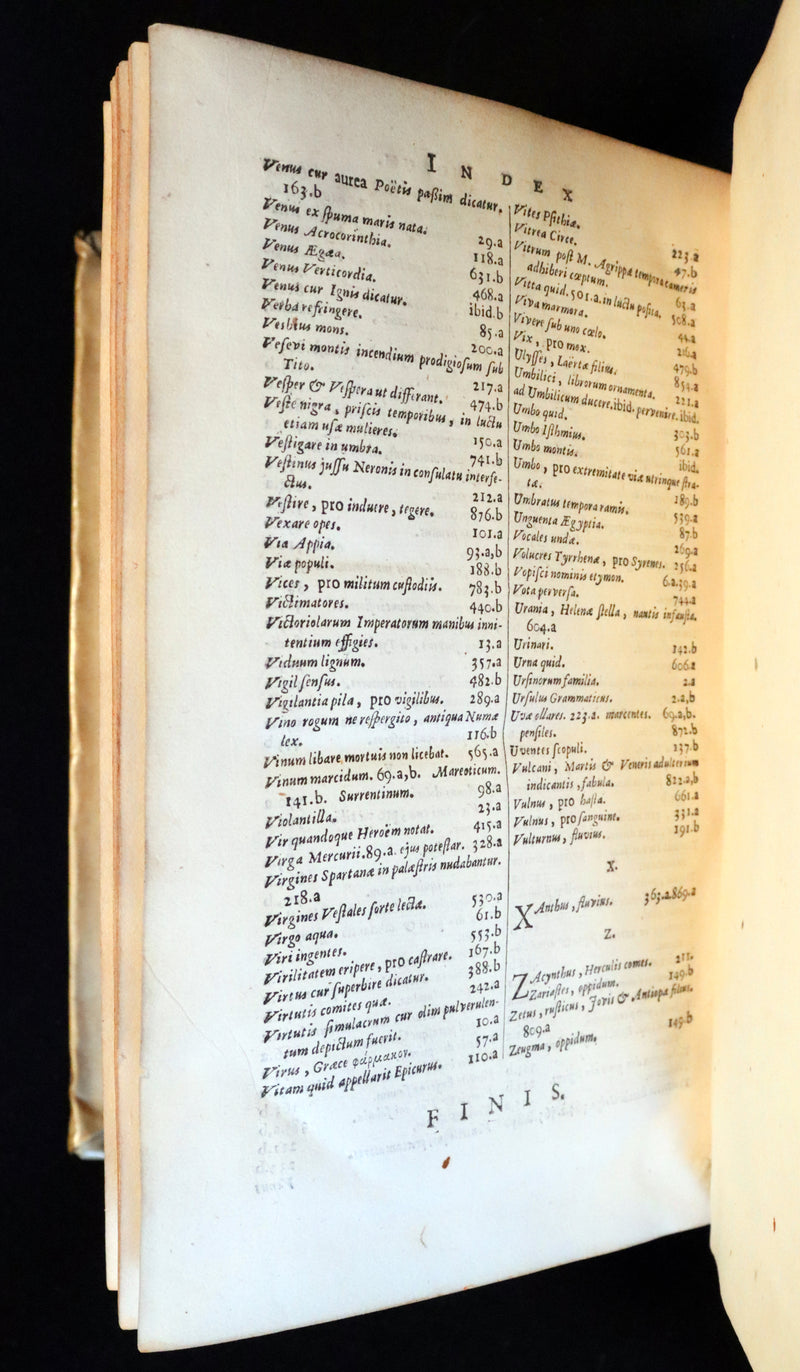 INDEX
Venus cur aurea Poëtis paßim dicatur.
163.b
Venus ex ſpuma maris nata. 29.a
Venus Acrocorinthia. 118.a
Venus Ægæa. 631.b
Venus Verticordia. 468.a
Venus cur Ignis dicatur. ibid.b
Verba refringere. 85.a
Vesbius mons. 200.a
Veſevi montis incendium prodigioſum ſub
Tito. 217.a
Veſper & Veſpera ut differant. 474.b
Veſte nigra, priſcis temporibus, in luctu
etiam uſæ mulieres. 150.a
Veſtigare in umbra. 741.b
Veſtinus juſſu Neronis in conſulatu interfe-
ctus. 212.a
Veſtire, pro induere, tegere. 876.b
Vexare opes. 101.a
Via Appia. 93.a,b
Viæ populi. 188.b
Vices, pro militum cuſtodiis. 783.b
Victimatores. 440.b
Victoriolarum Imperatorum manibus inni-
tentium effigies. 13.a
Viduum lignum. 357.a
Vigil ſenſus. 482.b
Vigilantia pila, pro vigilibus. 289.a
Vino rogum ne reſpergito, antiqua Numæ
lex. 116.b
Vinum libare mortuis non licebat. 565.a
Vinum marcidum. 69.a,b. Mareoticum.
141.b. Surrentinum. 98.a
Violantilla. 23.a
Vir quandoque Heroëm notat. 415.a
Virga Mercurii. 89.a. ejus poteſtar. 328.a
Virgines Spartanæ in palæſtris nudabantur.
218.a
Virgines Veſtales ſorte lectæ. 530.a
Virgo aqua. 61.b
Viri ingentes. 553.b
Virilitatem eripere, pro caſtrare. 167.b
Virtus cur ſuperbire dicatur. 388.b
Virtutis comites quæ. 242.a
Virtutis ſimulacrum cur olim pulverulen-
tum depictum fuerit. 10.a
Virus, Græce φάρμακον. 57.a
Vitam quid appellarit Epicurus. 110.a
Vites Pſithiæ. 223.a
Vitrea Circe. 47.b
Vitrum poſt M. Agrippæ tempora cameris
adhiberi cœptum. 63.a
Vitta quid. 501.a. in luctu poſita. 508.a
Viva marmora. 44.a
Vivere ſub uno cœlo. 216.a
Vix, pro mox. 479.b
Ulyſſes, Laërtæ filius. 854.a
Umbilici, librorum ornamenta. 221.a
ad Umbilicum ducere. ibid. pervenire. ibid.
Umbo quid. 303.b
Umbo Iſthmius. 561.a
Umbo montis. ibid.
Umbo, pro extremitate viæ utrinque ſtra-
tæ. 189.b
Umbratus tempora ramis. 539.a
Unguenta Ægyptia. 87.b
Vocales undæ. 269.a
Volucres Tyrrhenæ, pro Syrenes. 256.a
Vopiſci nominis etymon. 6.a.39.a
Vota perverſa. 744.a
Urania, Helenæ ſtella, nautis infauſta.
604.a
Urinari. 142.b
Urna quid. 606.a
Urſinorum familia. 2.a
Urſulus Grammaticus. 2.a,b
Uvæ ollares. 223.a. marcentes. 69.a,b.
penſiles. 872.b
Uventes ſcopuli. 137.b
Vulcani, Martis & Veneris adulterium
indicantis, fabula. 822.a,b
Vulnus, pro haſta. 661.a
Vulnus, pro ſanguine. 331.a
Vulturnus, fluvius. 191.b
X.
XAnthus, fluvius. 363.a.869.a
Z.
ZAcynthus, Herculis comes. 211.
Zariaſtes, oppidum. 149.b
Zetus, ruſticus, Jovis & Antiopæ filius.
809.a
Zeugma, oppidum. 149.b
FINIS.